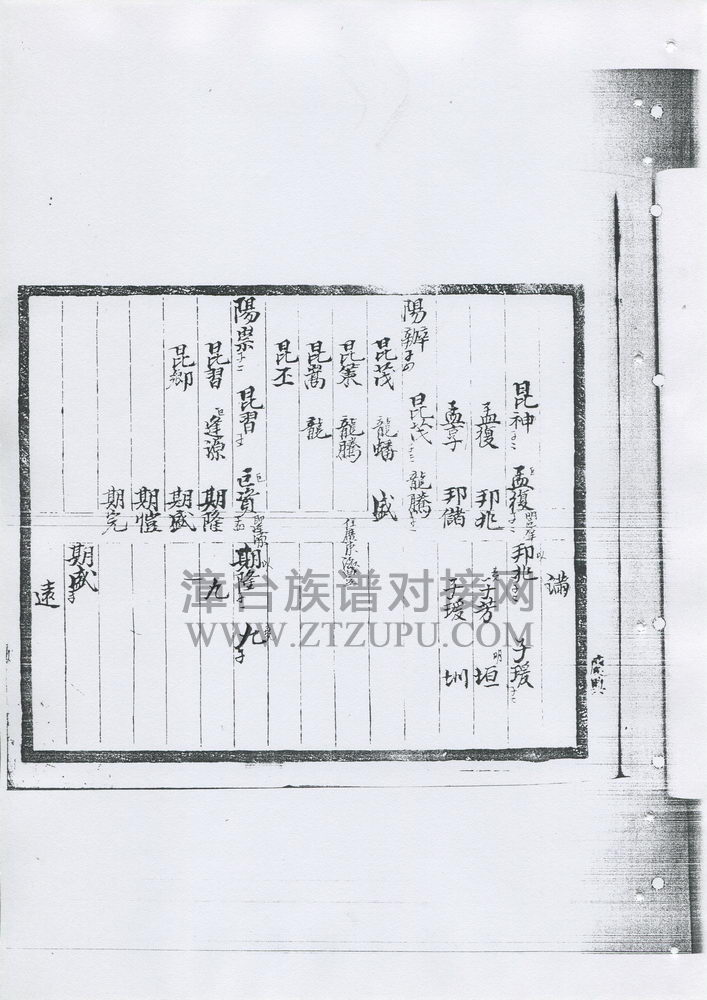 滿
昆神 孟復 邦兆 子瑗
孟復 邦兆 子芳 垣
孟享 邦儲 子瑗 圳
陽辦 昆茂 龍騰
昆茂 龍蟠 盛
昆策 龍騰
昆嵩 龍
昆丕
陽祟 昆習 巨資 期隆 九
昆習 逢源 期隆 九
昆卿 期盛
期愷
期完
期盛
遠
漳台族谱对接网
WWW.ZTZUPU.COM